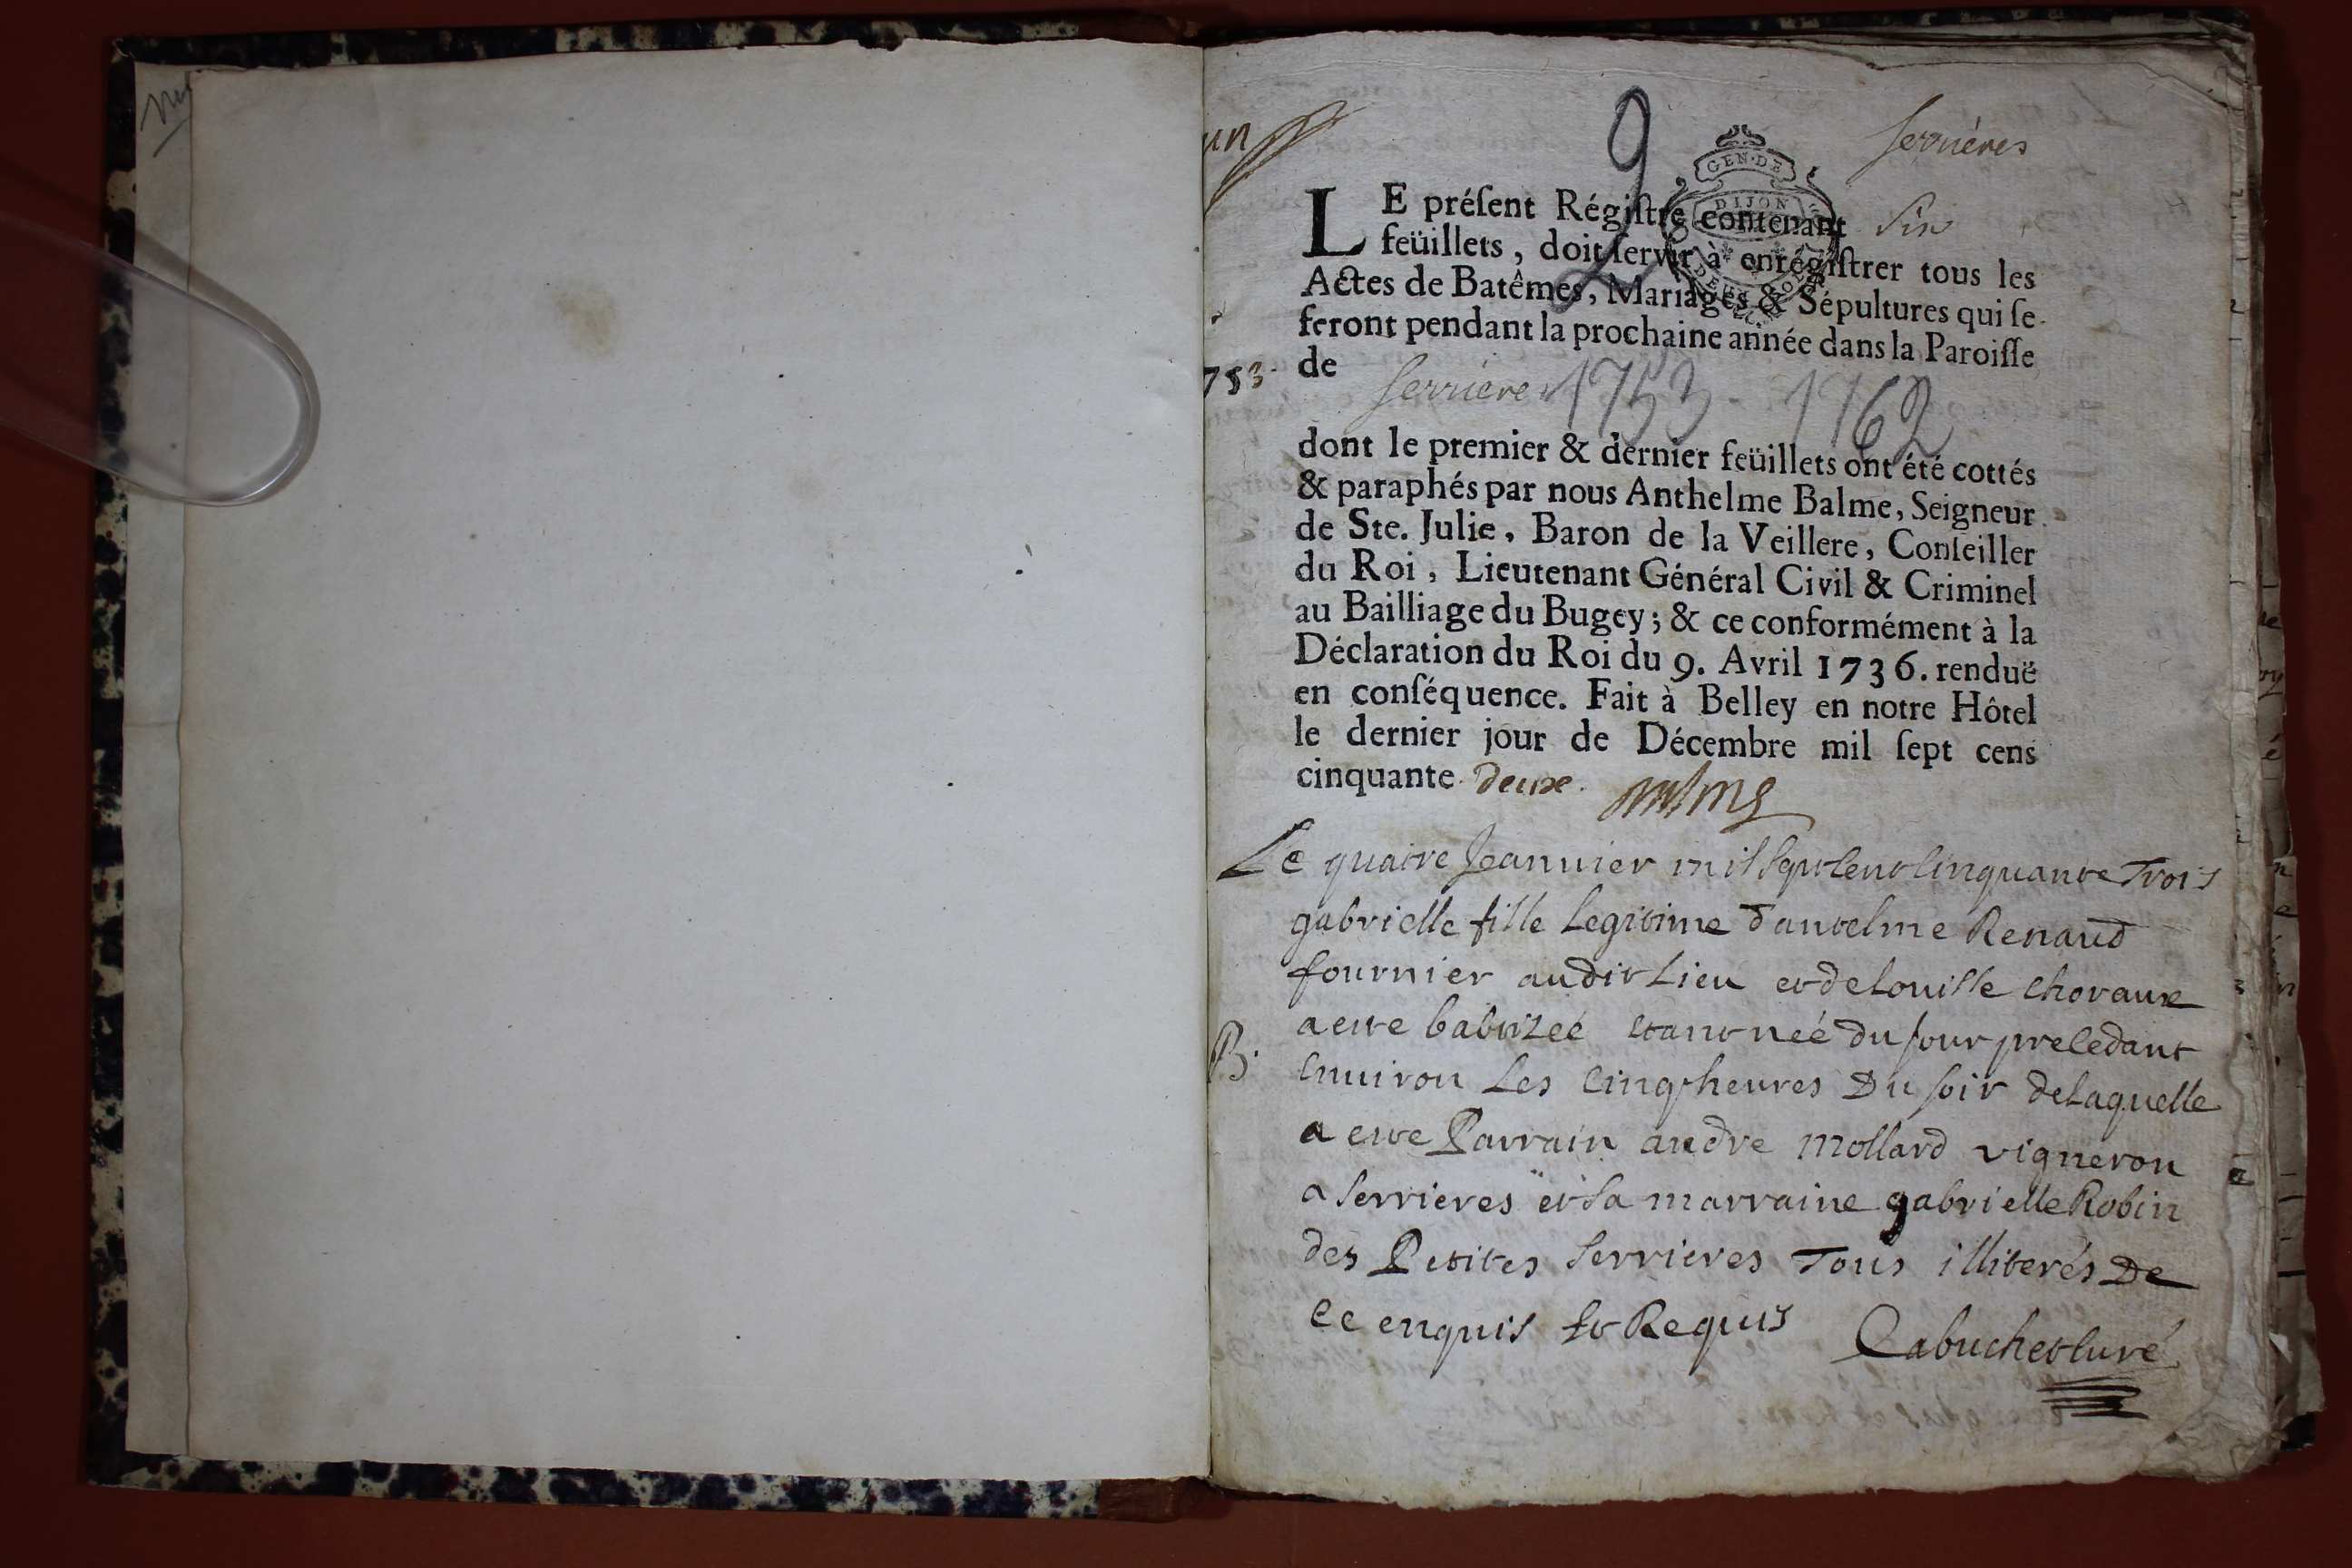 un
9
Serrières
GEN·DE
DIJON
LE préſent Régiſtre contenant Six
feüillets, doit ſervir à enrégiſtrer tous les
Actes de Batêmes, Mariages & Sépultures qui ſe
feront pendant la prochaine année dans la Paroiſſe
753
de
Serrieres 1753 - 1762
dont le premier & dernier feüillets ont été cottés
& paraphés par nous Anthelme Balme, Seigneur
de Ste. Julie, Baron de la Veillere, Conſeiller
du Roi, Lieutenant Général Civil & Criminel
au Bailliage du Bugey; & ce conformément à la
Déclaration du Roi du 9. Avril 1736. renduë
en conſéquence. Fait à Belley en notre Hôtel
le dernier jour de Décembre mil ſept cens
cinquante deuxe.
Le quatre Jeanuier mil Sept Cent Cinquante Trois
gabrielle fille Legitime d'antelme Renaud
fournier audit Lieu et de Louisse Choraux
a este batizeé etant neé du jour precedant
B. Enuiron Les Cinq heures Du soir de Laquelle
a este Parrain andre Mollard vigneron
a Serrieres et Sa marraine gabrielle Robin
des Petites Serrieres Tous illiterés De
ce enquis Et Requis Cabuchet Curé